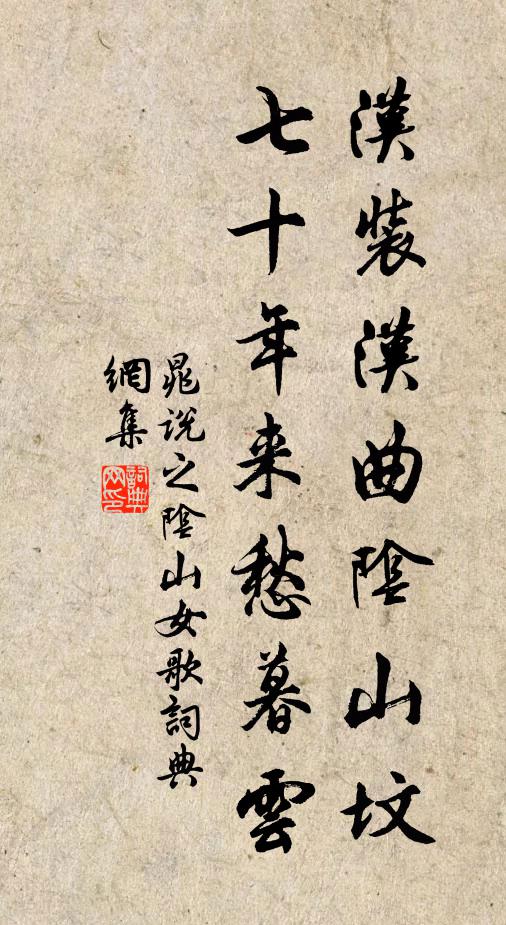 漢裝漢曲陰山墳
七十年来愁暮雲
晁説之陰山女歌詞典
網集
詞典網印